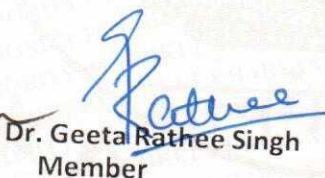 Rathee
Dr. Geeta Rathee Singh
Member